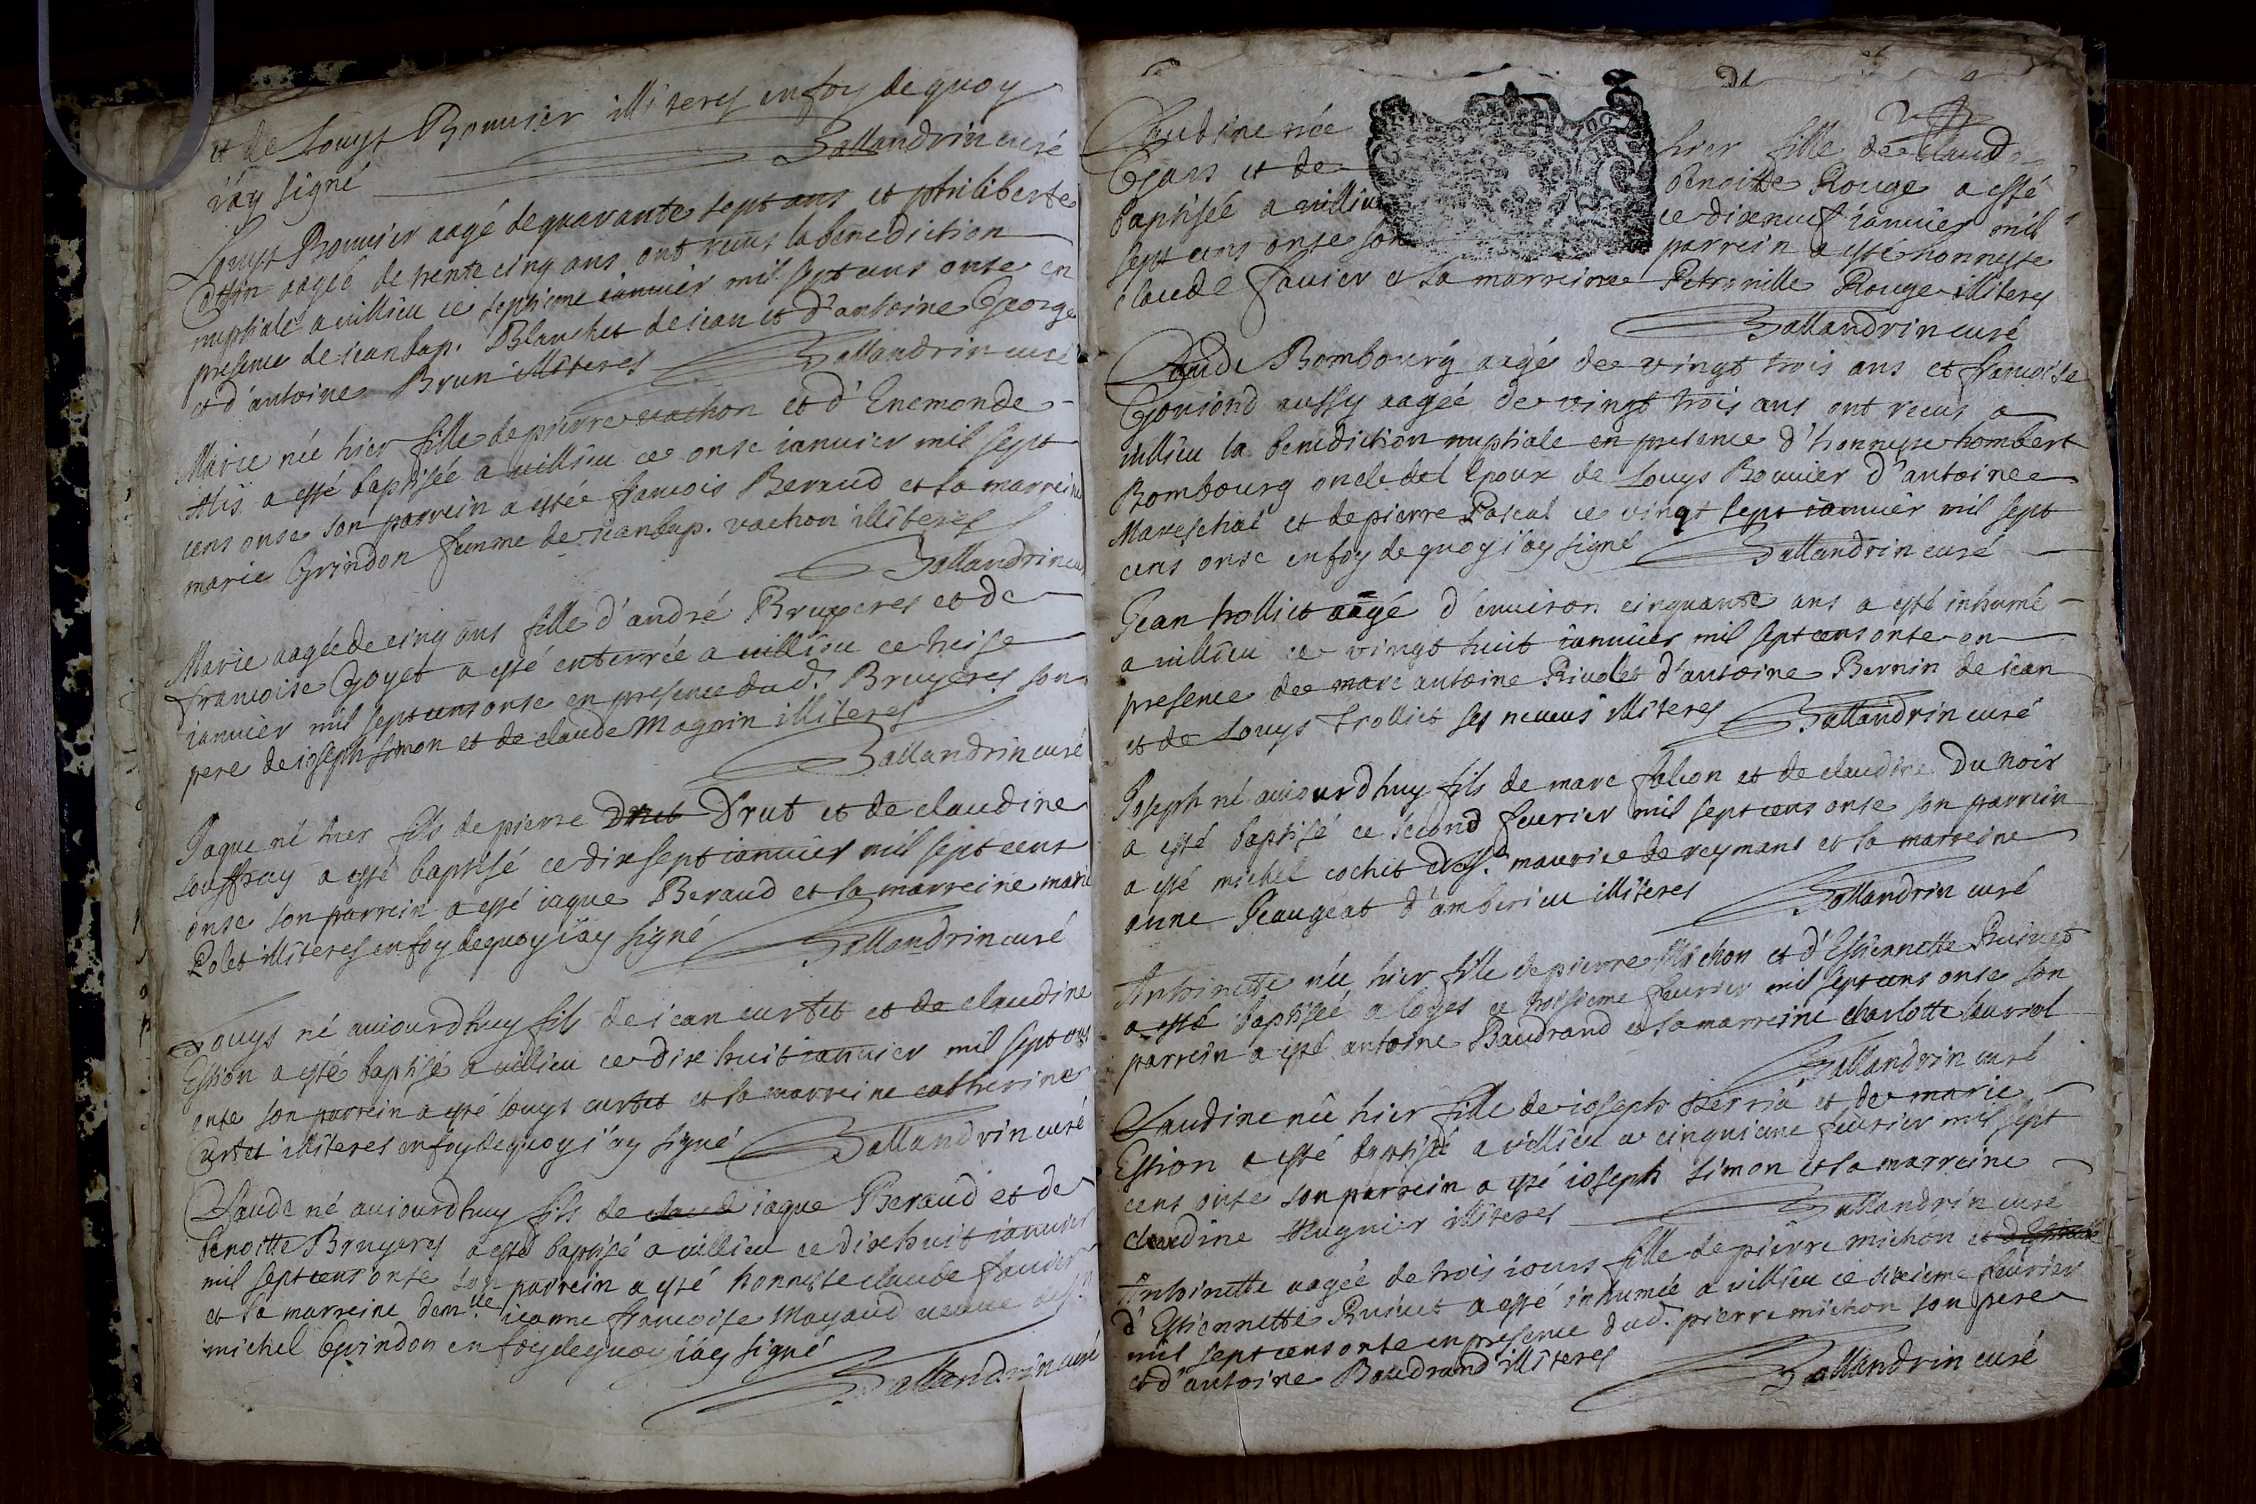 et de Louys Bouuier illiteres en foy de quoy
i'ay signé Ballandrin curé
Louys Bouuier aagé de quarante sept ans et philiberte
aagée de trente cinq ans ont receus la benediction
nuptiale a uillieu ce septieme ianuier mil sept cens onse en
presence de iean bap. Blanchet de iean et d'antoine George
et d'antoine Brun illiteres Ballandrin curé
Marie née hier fille de pierre vachon et d'Enemonde
Alis a esté baptisée a uillieu ce onse ianuier mil sept
cens onse son parrein a estée francois Beraud et la marreine
marie Grindon femme de iean bap. vachon illiteres
Ballandrin curé
Marie aagée de cinq ans fille d'andré Bruyeres et de
francoise Goyet a esté enterrée a uillieu ce treise
ianuier mil sept cens onse en presence dud. Bruyeres son
pere de ioseph simon et de claude Magnin illiteres
Ballandrin curé
Iaque né hier fils de pierre Drut Drut et de claudine
souffray a esté baptisé ce dix sept ianuier mil sept cens
onse son parrein a esté iaque Beraud et la marreine marie
Polet illiteres en foy de quoy i'ay signé Ballandrin curé
Louys né auiourdhuy fils de iean curtet et de claudine
Estion a esté baptisé a uillieu ce dix huit ianuier mil sept cens
onse son parrein a esté louys curtet et la marreine catherine
Curtet illiteres en foy de quoy i'ay signé Ballandrin curé
Claude né auiourdhuy fils de claude iaque Beraud et de
benoitte Bruyeres a esté baptisé a uillieu ce dix huit ianuier
mil sept cens onse son parrein a esté honneste claude fauier
et la marreine dem.lle ieanne francoise Mayaud veuue de
michel Grindon en foy de quoy i'ay signé
Ballandrin curé
Claudine née hier fille de claude
Gjans et de benoitte Rouge a esté
baptisée a uillieu ce dixneuf ianuier mil
sept cens onse son parrein a esté honneste
claude fauier et la marreine Petronille Rouge illiteres
Ballandrin curé
Claude Bombourg aagé de vingt trois ans et francoise
Goriond aussy aagée de vingt trois ans ont receus a
uillieu la benediction nuptiale en presence d'honneste hombert
Bombourg oncle del Epoux de Louys Bouuier d'antoine
Mareschal et de pierre Pascal ce vingt sept ianuier mil sept
cens onse en foy de quoy i'ay signé Ballandrin curé
Iean trolliet aagé d'enuiron cinquante ans a esté inhumé
a uillieu ce vingt huit ianuier mil sept cens onse en
presence de marc antoine Riuolet d'antoine Bernin de iean
et de Louys trolliet ses neueus illiteres Ballandrin curé
Ioseph né auiourdhuy fils de marc falion et de claudine Du noir
a esté baptisé ce second feurier mil sept cens onse son parrein
a esté michel cochet maurice de reymans et la marreine
anne Geaugeat d'amberieu illiteres Ballandrin curé
Antoinette née hier fille de pierre Michon et d'Estiennette Ruiuet
a esté baptisée a loyes ce troisieme feurier mil sept cens onse son
parrein a esté antoine Baudrand et la marreine charlotte
Ballandrin curé
Claudine née hier fille de ioseph Perria et de marie
Estion a esté baptisée a uillieu ce cinquieme feurier mil sept
cens onse son parrein a esté ioseph simon et la marreine
claudine Hugnier illiteres Ballandrin curé
Antoinette aagée de trois iours fille de pierre michon et
d'Estiennette Ruiuet a esté inhumée a uillieu ce sixieme feurier
mil sept cens onse en presence dud. pierre michon son pere
et d'antoine Baudrand illiteres Ballandrin curé